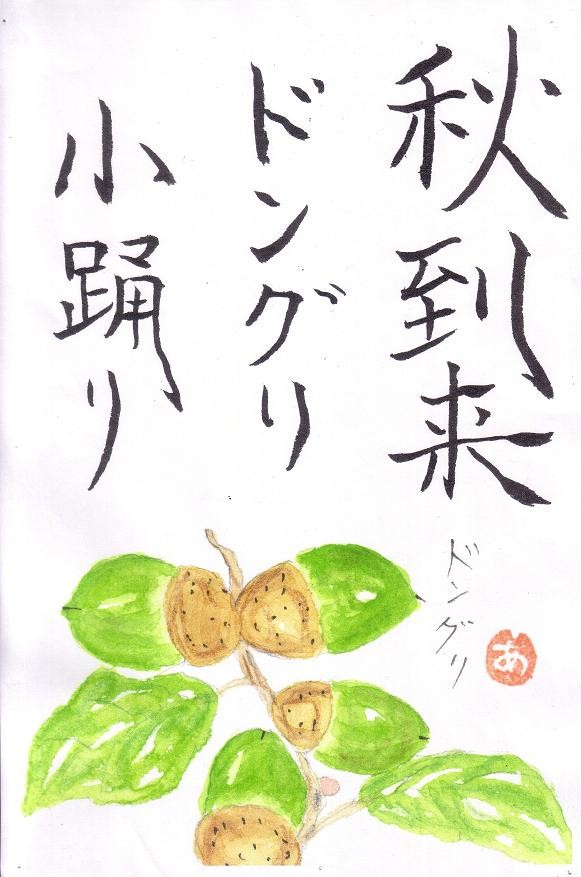 秋到来
ドングリ
小踊り
ドングリ
あ